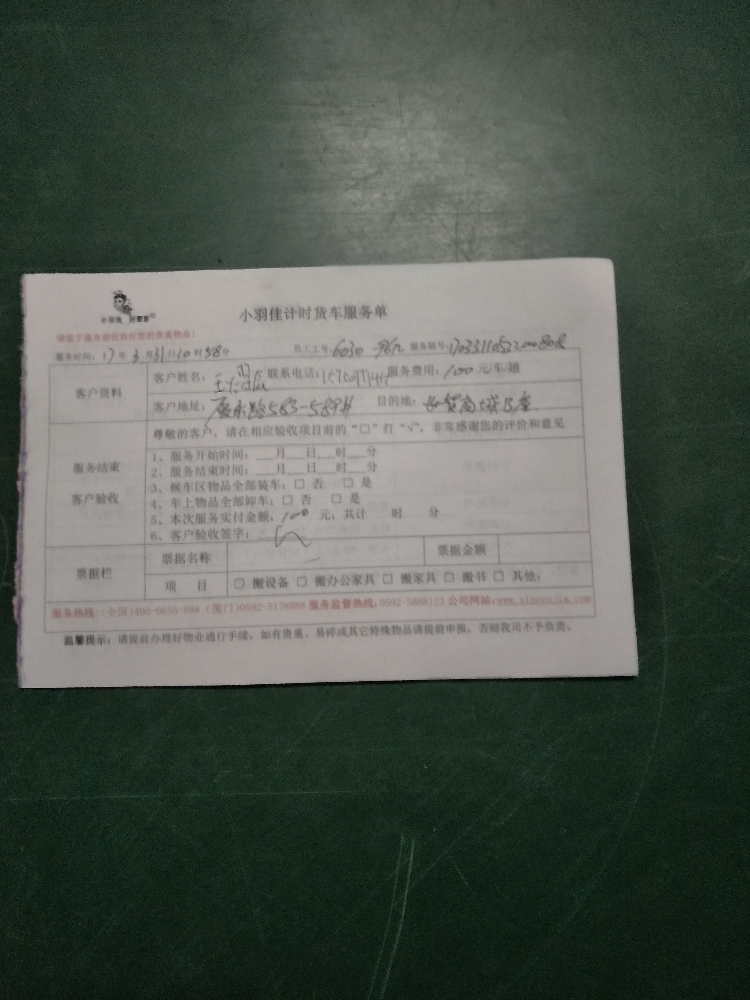 小羽佳 好管家
小羽佳计时货车服务单
请您于服务前收拾好您的贵重物品!
服务时间: 17 年 3 月 31 日 10 时 58 分 员工工号: 6030 服务账号:
客户资料
客户姓名: 联系电话: 服务费用: 100 元/车/趟
客户地址: 583-589# 目的地: 世贸商城
服务结束
客户验收
尊敬的客户, 请在相应验收项目前的“□”打“√”, 非常感谢您的评价和意见
1、服务开始时间: __月__日__时__分
2、服务结束时间: __月__日__时__分
3、候车区物品全部装车: □ 否 □ 是
4、车上物品全部卸车: □ 否 □ 是
5、本次服务实付金额: 100 元; 共计 时 分
6、客户验收签字:
票据栏
票据名称 票据金额
项 目 □ 搬设备 □ 搬办公家具 □ 搬家具 □ 搬书 □ 其他:
服务热线:(全国)400-6655-888 (厦门)0592-5178888 服务监督热线:0592-5888123 公司网站:www.xiaoyujia.com
温馨提示: 请提前办理好物业通行手续, 如有贵重、易碎或其它特殊物品请提前申报, 否则我司不予负责。